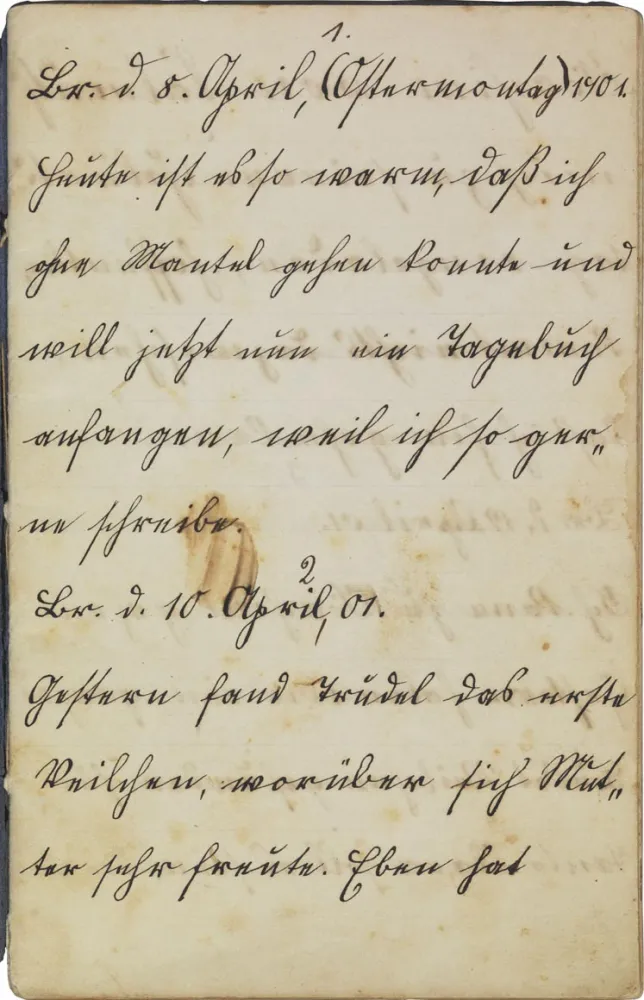 1.
Br. d. 8. April, (Ostermontag) 1901.
Heute ist es so warm, daß ich
ohne Mantel gehen konnte und
will jetzt nun ein Tagebuch
anfangen, weil ich so ger„
ne schreibe.
2
Br. d. 10. April, 01.
Gestern fand Trudel das erste
Veilchen, worüber sich Mut„
ter sehr freute. Eben hat